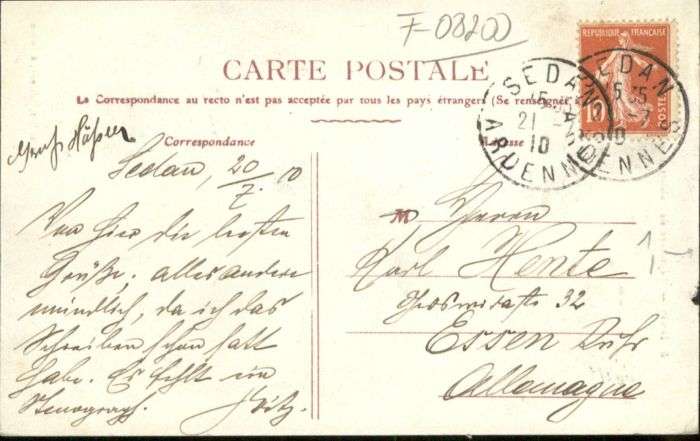 F-08200
REPUBLIQUE FRANÇAISE
10
POSTES
SEDAN
21 - 7
10
ARDENNES
SEDAN
ARDENNES
CARTE POSTALE
La Correspondance au recto n'est pas acceptée par tous les pays étrangers (Se renseigner à la
Correspondance
Adresse
Gruß
Sedan, 20/7. 10
Von hier die besten
Grüße, alles andere
mündlich, da ich das
Schreiben schon satt
habe. Es fehlt ein
Stenograph. Fritz.
M Herrn
Karl Hente
32
Essen Ruhr
Allemagne